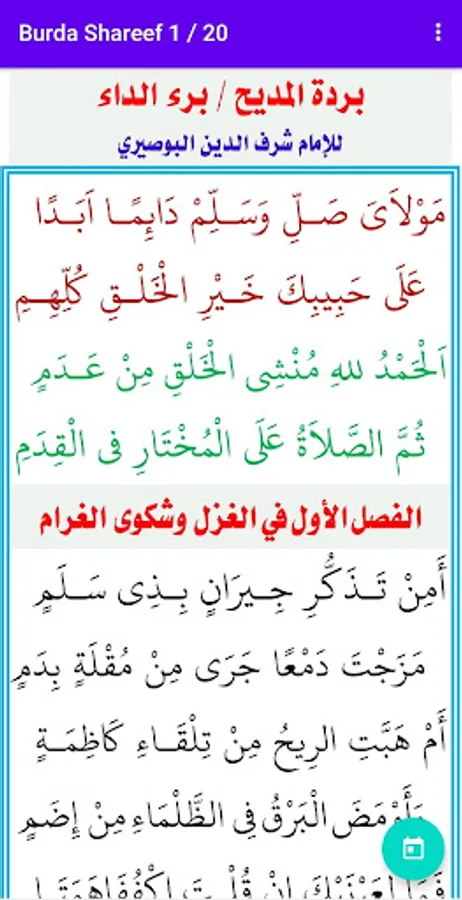 Burda Shareef 1 / 20
بردة المديح / برء الداء
للإمام شرف الدين البوصيري
مَوْلاَىَ صَـلِّ وَسَـلِّمْ دَائِمًـا اَبَـدًا
عَلَى حَبِيبِكَ خَـيْرِ الْخَلْـقِ كُلِّهِـمِ
اَلْحَمْدُ للهِ مُنْشِى الْخَلْقِ مِنْ عَـدَمٍ
ثُمَّ الصَّلاَةُ عَلَى الْمُخْتَارِ فِى الْقِدَمِ
الفصل الأول في الغزل وشكوى الغرام
أَمِنْ تَـذَكُّرِ جِـيرَانٍ بِـذِى سَـلَمٍ
مَزَجْتَ دَمْعًا جَرَى مِنْ مُقْلَةٍ بِدَمٍ
أَمْ هَبَّتِ الرِيحُ مِنْ تِلْقَـاءِ كَاظِمَـةٍ
وَأَوْمَضَ الْبَرْقُ فِى الظَّلْمَاءِ مِنْ إِضَمٍ
فَمَا لِعَيْنَيْكَ اِنْ قُلْتَ اكْفُفَا هَمَتَـا